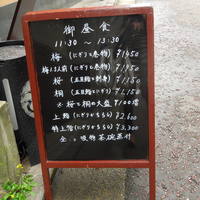 御昼食
11:30 〜 13:30
梅 (にぎりと巻物) ¥1450
梅1.5人前(にぎりと巻物) ¥1950
桜 (五目鮨と刺身) ¥1150
桐 (五目鮨と) ¥1,150
※ 桜と桐の大盛 ¥100増
上鮨 (にぎりかちらし) ¥2,600
特上鮨(にぎりかちらし) ¥3,300
全 吸物 茶碗蒸付